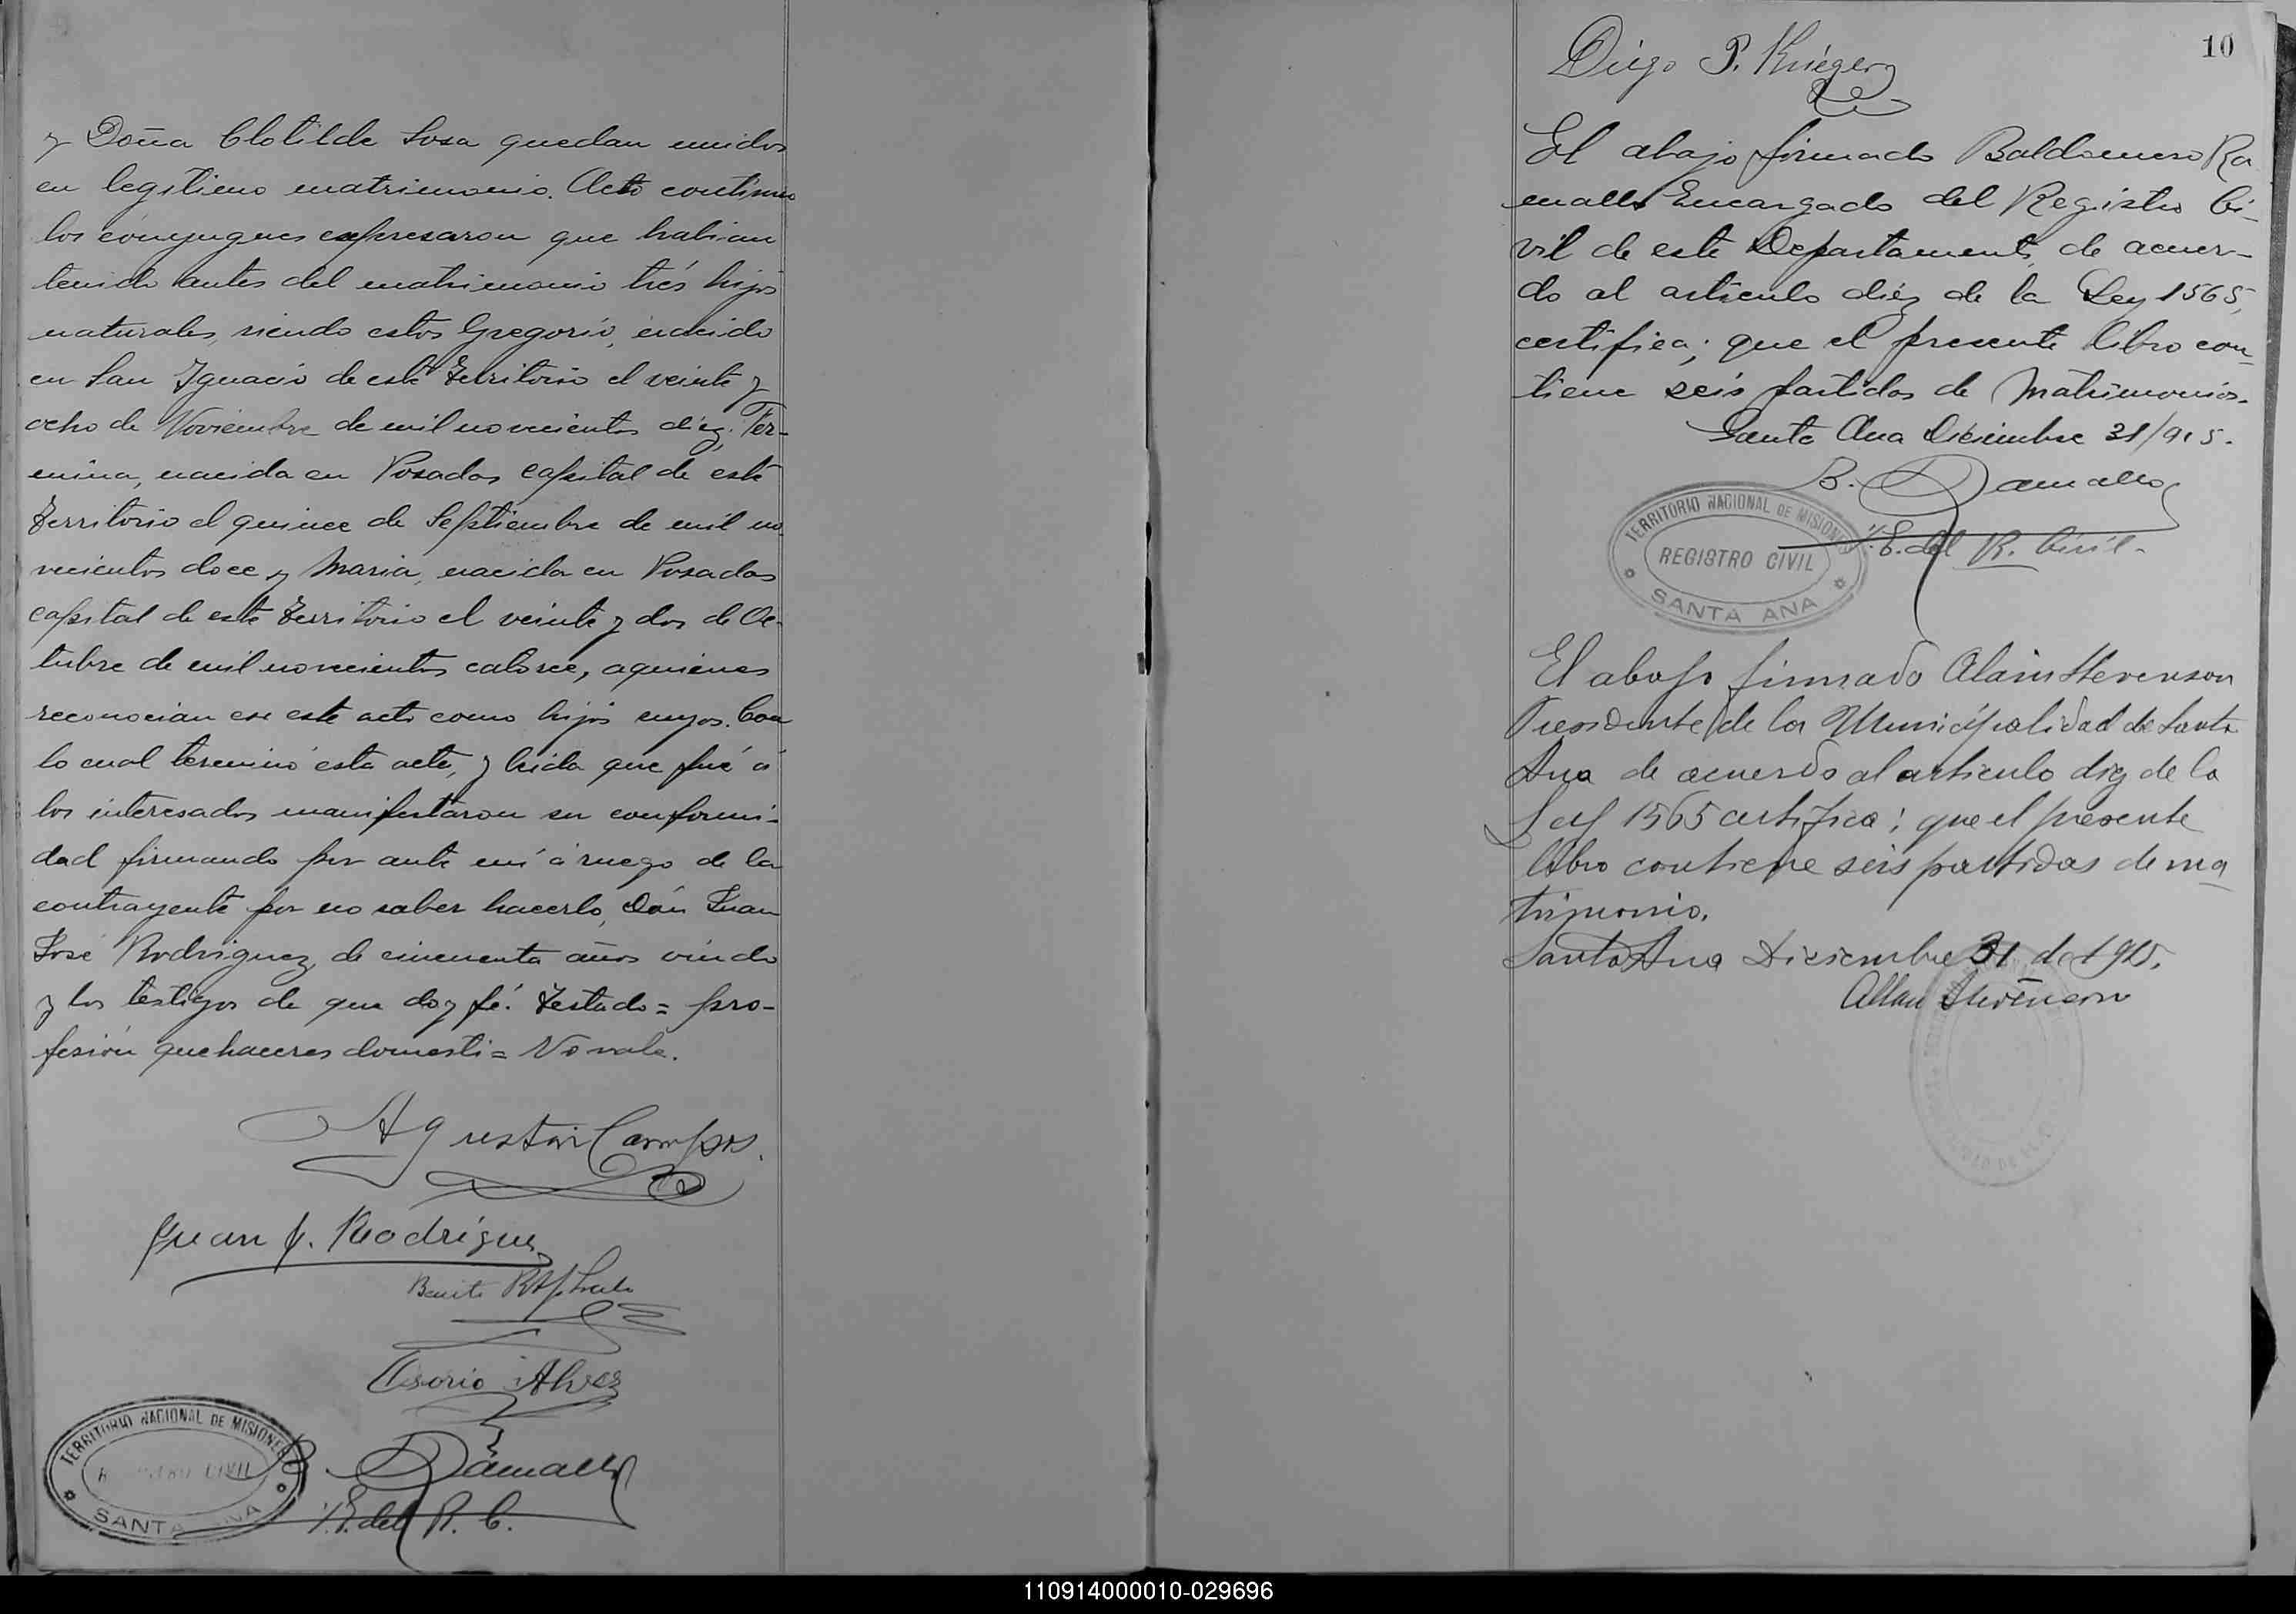 y Doña Clotilde Sosa quedan unidos
en legitimo matrimonio. Acto continuo
los cónyugues expresaron que habian
tenido antes del matrimonio trés hijos
naturales, siendo estos Gregorio, nacido
en San Ignacio de este Territorio el veinte y
ocho de Noviembre de mil novecientos diez, Fer-
mina, nacida en Posadas capital de este
Territorio el quince de Septiembre de mil no
vecientos doce y Maria, nacida en Posadas
capital de este Territorio el veinte y dos de Oc-
tubre de mil novecientos catorce, a quienes
reconocian en este acto como hijos suyos. Con
lo cual terminó esta acta, y leida que fué á
los interesados manifestaron su conformi-
dad firmando por ante mi á ruego de la
contrayente por no saber hacerlo, Dón Juan
José Rodriguez, de cincuenta años viudo
y los testigos de que doy fé. Testado = pro-
fesión quehaceres domesti = No vale.
Agustin Campos.
Juan J. Rodrigues
Benito
Osorio Alvez
TERRITORIO NACIONAL DE MISIONES
REGISTRO CIVIL
SANTA ANA
B. Ramallo
E. del R. C.
10
Diego P. Krieger
El abajo firmado Baldomero Ra
mallo Encargado del Registro Ci-
vil de este Departamento, de acuer-
do al articulo diez de la Ley 1565,
certifica; que el presente libro con
tiene seis partidas de Matrimonios.
Santa Ana Diciembre 31/915.
B. Ramallo
E. del R. Civil-
TERRITORIO NACIONAL DE MISIONES
REGISTRO CIVIL
SANTA ANA
El abajo firmado Alain Stevenson
Presidente de la Municipalidad de Santa
Ana de acuerdo al articulo diez de la
Ley 1565 certifica; que el presente
libro contiene seis partidas de ma
trimonio.
Santa Ana Diciembre 31 de 1915.
Allan Stevenson
110914000010-029696